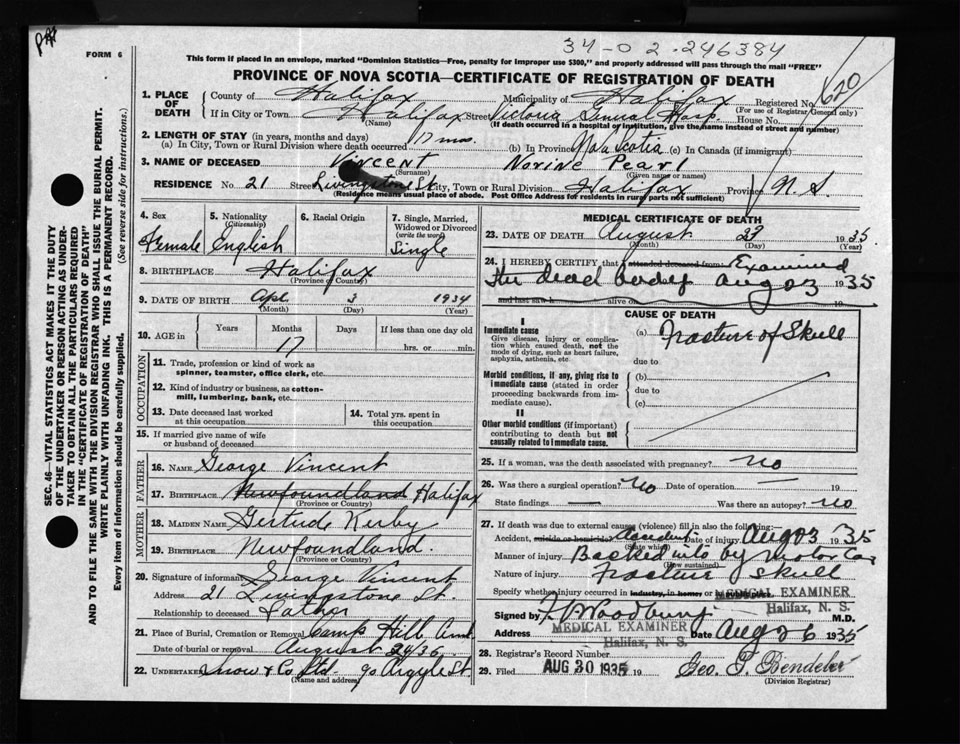 34-02.246384
FORM 6
This form if placed in an envelope, marked "Dominion Statistics—Free, penalty for improper use $300," and properly addressed will pass through the mail "FREE"
PROVINCE OF NOVA SCOTIA—CERTIFICATE OF REGISTRATION OF DEATH
620
SEC. 46—VITAL STATISTICS ACT MAKES IT THE DUTY
OF THE UNDERTAKER OR PERSON ACTING AS UNDER-
TAKER TO OBTAIN ALL THE PARTICULARS REQUIRED
IN THE "CERTIFICATE OF REGISTRATION OF DEATH"
AND TO FILE THE SAME WITH THE DIVISION REGISTRAR WHO SHALL ISSUE THE BURIAL PERMIT.
WRITE PLAINLY WITH UNFADING INK. THIS IS A PERMANENT RECORD.
Every item of information should be carefully supplied. (See reverse side for instructions.)
1. PLACE OF DEATH County of Halifax Municipality of Halifax Registered No.
(For use of Registrar General only)
If in City or Town Halifax Street Victoria General Hosp. House No.
(Name) (If death occurred in a hospital or institution, give the name instead of street and number)
2. LENGTH OF STAY (in years, months and days)
(a) In City, Town or Rural Division where death occurred 17 mos. (b) In Province Nova Scotia (c) In Canada (if immigrant)
3. NAME OF DECEASED Vincent Norine Pearl
(Surname) (Given name or names)
RESIDENCE No. 21 Street Livingstone St. City, Town or Rural Division Halifax Province N.S
(Residence means usual place of abode. Post Office Address for residents in rural parts not sufficient)
4. Sex 5. Nationality (Citizenship) 6. Racial Origin 7. Single, Married, Widowed or Divorced (write the word)
Female English Single
8. BIRTHPLACE Halifax
(Province or Country)
9. DATE OF BIRTH Apl 3 1934
(Month) (Day) (Year)
10. AGE in Years Months Days If less than one day old
17 hrs. or min.
OCCUPATION
11. Trade, profession or kind of work as
spinner, teamster, office clerk, etc.
12. Kind of industry or business, as cotton-
mill, lumbering, bank, etc.
13. Date deceased last worked
at this occupation
14. Total yrs. spent in
this occupation
15. If married give name of wife
or husband of deceased
FATHER
16. NAME George Vincent
17. BIRTHPLACE Newfoundland Halifax
(Province or Country)
MOTHER
18. MAIDEN NAME Gertrude Kerby
19. BIRTHPLACE Newfoundland.
(Province or Country)
20. Signature of informant George Vincent
Address 21 Livingstone St.
Relationship to deceased Father
21. Place of Burial, Cremation or Removal Camp Hill
Date of burial or removal August 24/35
22. Undertaker Snow & Co Ltd 90 Argyle St
Name and address
MEDICAL CERTIFICATE OF DEATH
23. DATE OF DEATH August 1935.
(Month) (Day) (Year)
24. I HEREBY CERTIFY that I attended deceased from: Examined
the dead body Aug 23 1935
and last saw h alive on
CAUSE OF DEATH
I
Immediate cause (a) Fracture of Skull
Give disease, injury or complica-
tion which caused death, not the
mode of dying, such as heart failure,
asphyxia, asthenia, etc.
due to
Morbid conditions, if any, giving rise to
immediate cause (stated in order
proceeding backwards from im-
mediate cause).
(b)
due to
(c)
II
Other morbid conditions (if important)
contributing to death but not
causally related to immediate cause.
25. If a woman, was the death associated with pregnancy? no
26. Was there a surgical operation? no Date of operation — 19
State findings — Was there an autopsy? no
27. If death was due to external causes (violence) fill in also the following:
Accident, suicide or homicide? Accident Date of injury Aug 23 1935
(State which)
Manner of injury Backed into by motor car
(How sustained)
Nature of injury Fracture Skull
Specify whether injury occurred in industry, in home, or in
MEDICAL EXAMINER
Halifax, N. S.
Signed by Woodbury M.D.
Address MEDICAL EXAMINER Date Aug 26 1935
Halifax, N. S.
28. Registrar's Record Number
29. Filed AUG 30 1935 19 Geo. F. Bendeler
(Division Registrar)